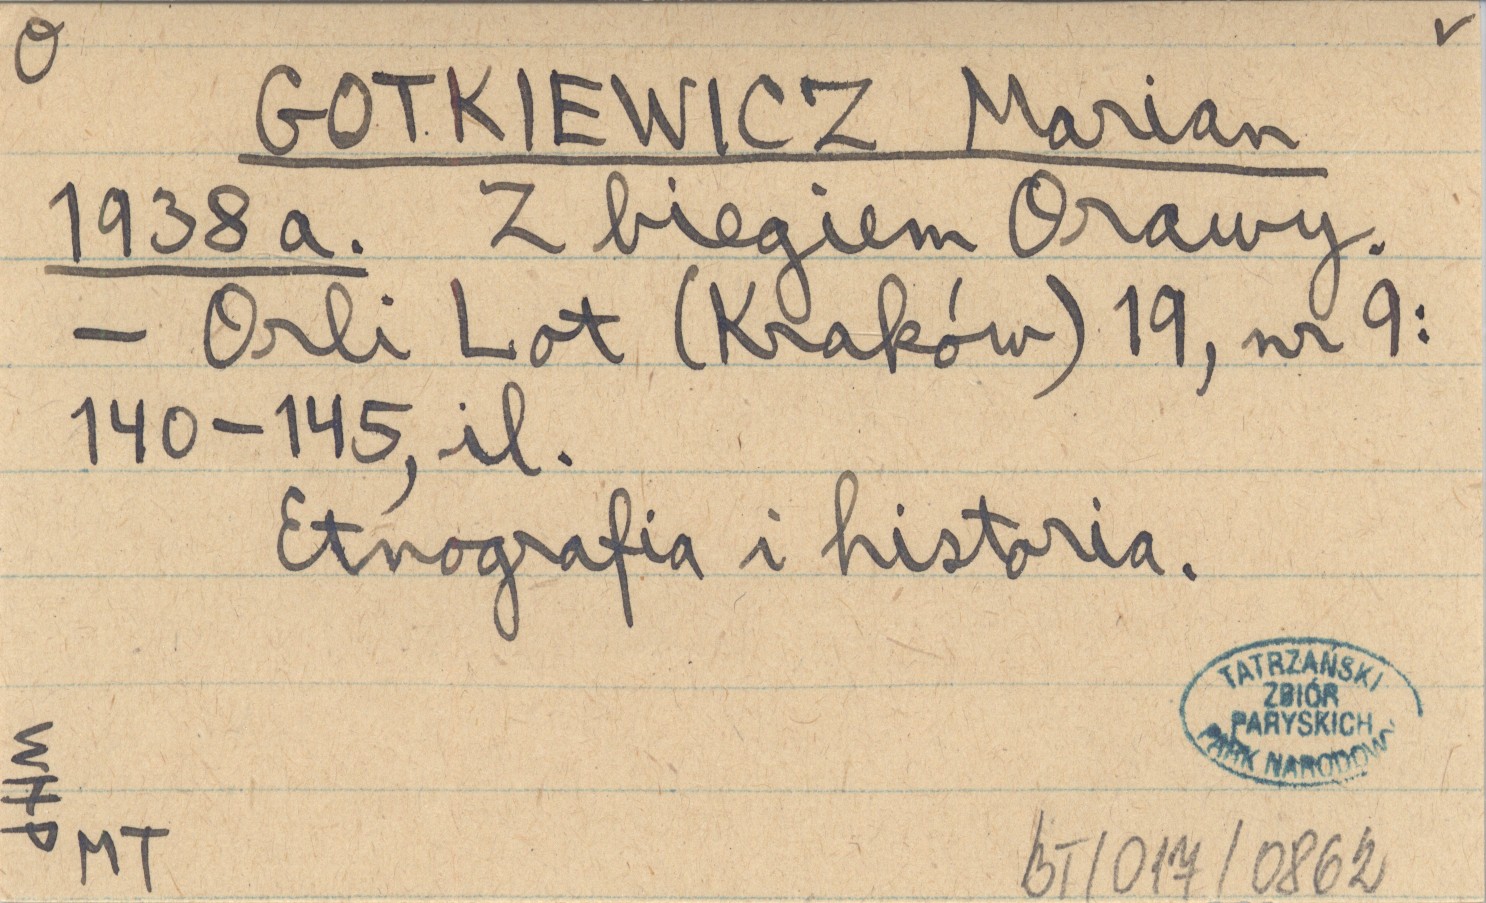 O
GOTKIEWICZ Marian
1938a. Z biegiem Orawy.
– Orli Lot (Kraków) 19, nr 9:
140–145, il.
Etnografia i historia.
TATRZAŃSKI
ZBIÓR
PARYSKICH
PARK NARODOWY
MT
BT/017/0862